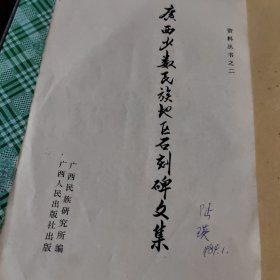 资料丛书之二
广西少数民族地区石刻碑文集
广西民族研究所编
广西人民出版社出版